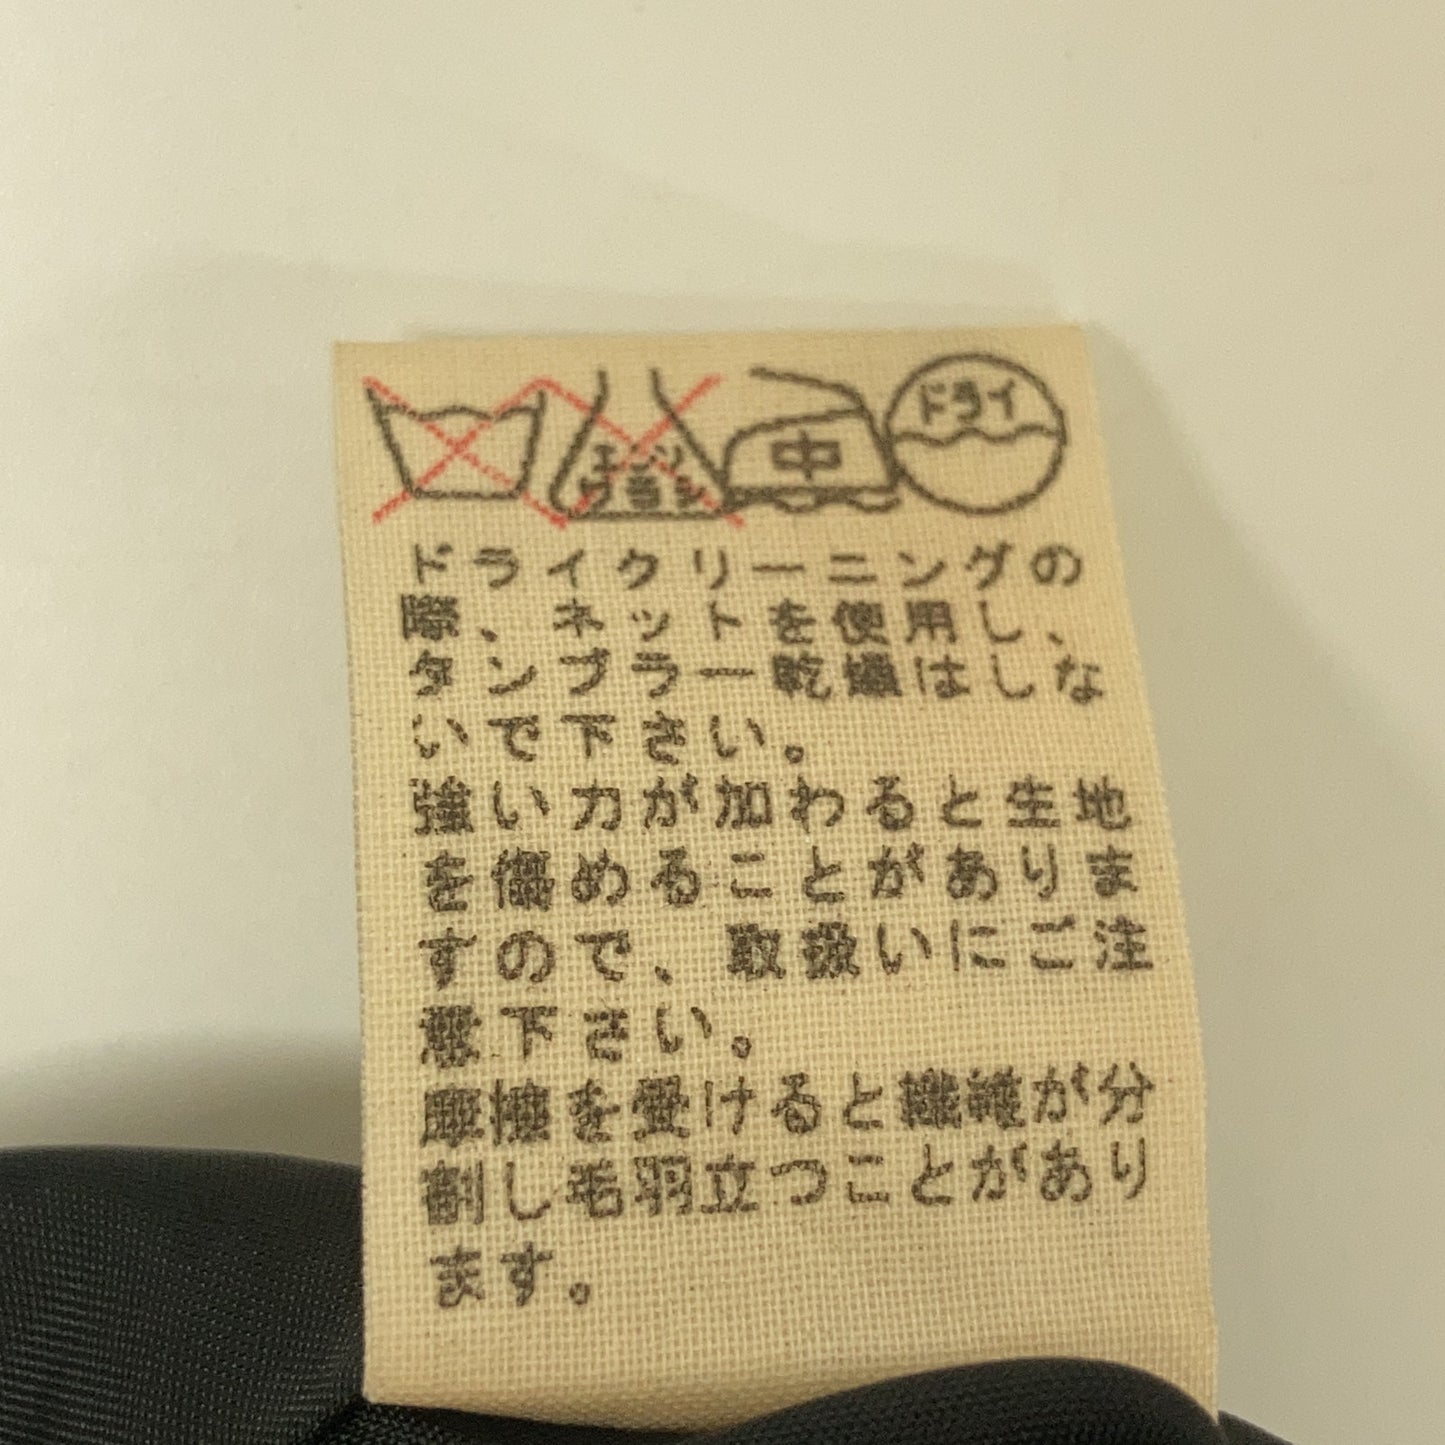 エンソ
サラシ
中
ドライ
ドライクリーニングの
際、ネットを使用し、
タンブラー乾燥はしな
いで下さい。
強い力が加わると生地
を傷めることがありま
すので、取扱いにご注
意下さい。
摩擦を受けると繊維が分
割し毛羽立つことがあり
ます。